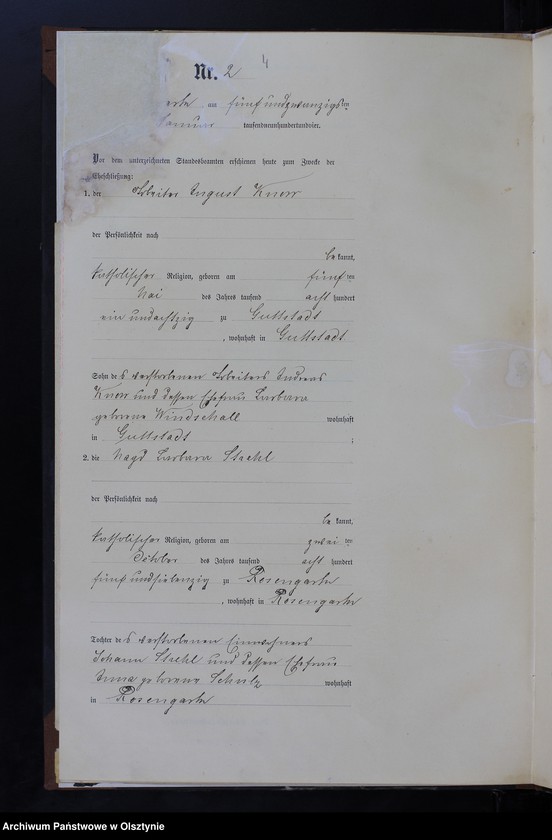 4
Nr. 2
am fünfundzwanzigsten
Januar tausendneunhundertundvier.
Vor dem unterzeichneten Standesbeamten erschienen heute zum Zwecke der
Eheschließung:
1. der Arbeiter August Knorr
der Persönlichkeit nach
bekannt,
katholischer Religion, geboren am fünften
Mai des Jahrs tausend acht hundert
einundachtzig zu Guttstadt
, wohnhaft in Guttstadt
Sohn des verstorbenen Arbeiters Andreas
Knorr und dessen Ehefrau Barbara
geborene Windschall wohnhaft
in Guttstadt ;
2. die Magd Barbara Strehl
der Persönlichkeit nach
bekannt,
katholischer Religion, geboren am zweiten
October des Jahrs tausend acht hundert
fünfundsiebenzig zu Rosengarth
, wohnhaft in Rosengarth
Tochter des verstorbenen Einwohners
Johann Strehl und dessen Ehefrau
Anna geborene Schulz wohnhaft
in Rosengarth
Archiwum Państwowe w Olsztynie